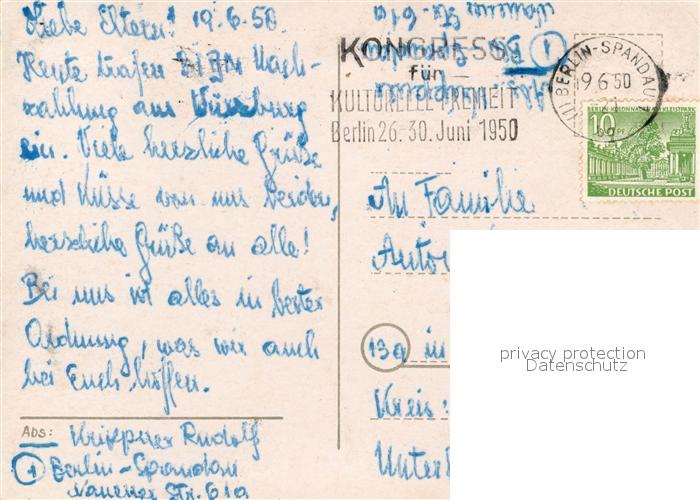 Liebe Eltern! 19.6.50.
Heute trafen Nach-
zahlung aus Würzburg
ein. Viele herzliche Grüße
und Küsse von uns beiden,
herzliche Grüße an alle!
Bei uns ist alles in bester
Ordnung, was wir auch
bei Euch hoffen.
Abs: Rudolf
1 Berlin-Spandau
Nauener Str. 61a
KONGRESS
für
KULTURELLE FREIHEIT
Berlin 26.-30. Juni 1950
BERLIN-SPANDAU
19.6.50
10 PF
DEUTSCHE POST
An Familie
13a in
Kreis:
privacy protection
Datenschutz